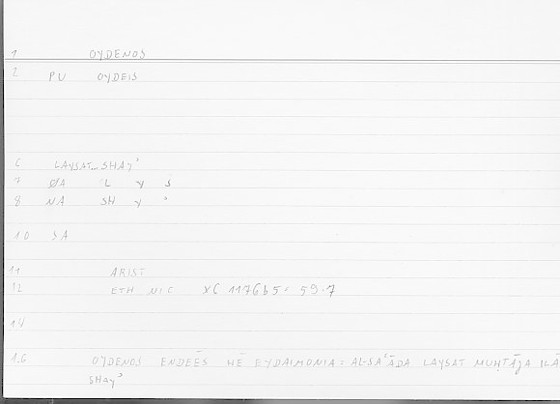 1 OYDENOS
2 PU OYDEIS
6 LAYSAT_SHAYʾ
7 ØA L Y S
8 NA SH Y ʾ
10 SA
11 ARIST
12 ETH NIC X6 1176b5 = 59.7
14
16 OYDENOS ENDEĒS HĒ EYDAIMONIA : AL-SAʿĀDA LAYSAT MUḤTĀJA ILĀ
SHAYʾ